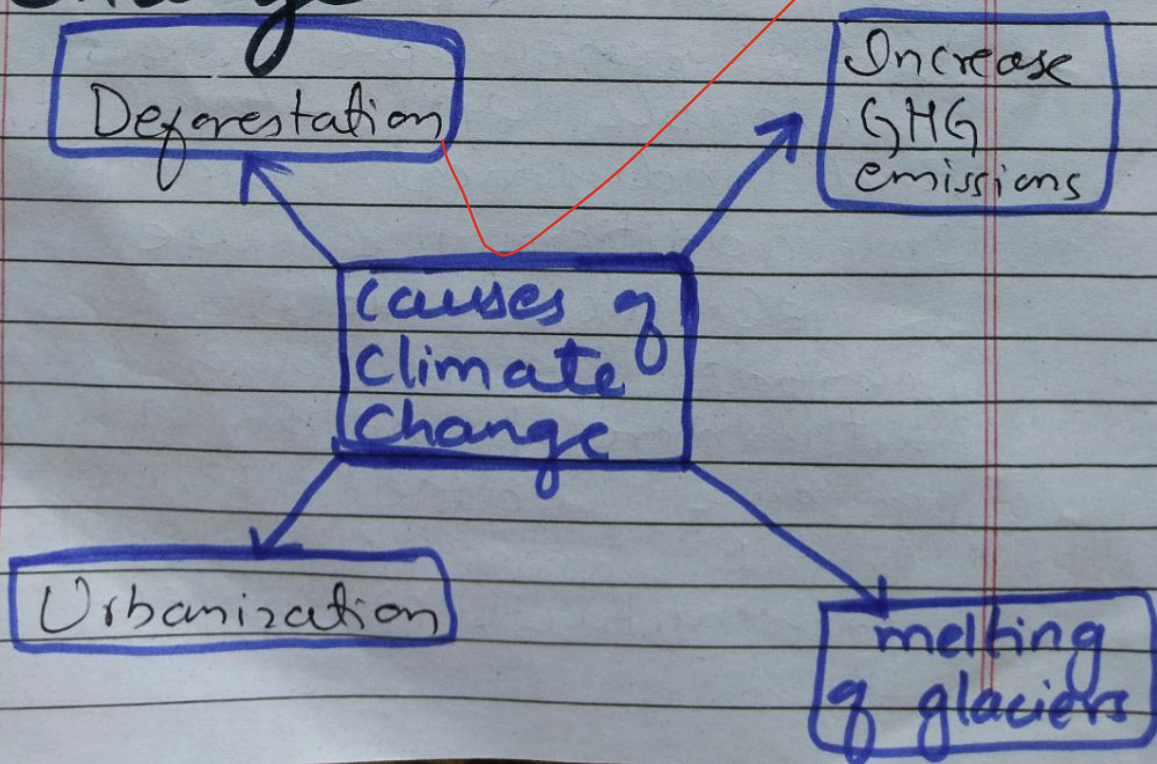 change
Deforestation
Increase
GHG
emissions
causes of
climate
change
Urbanization
melting
of glaciers